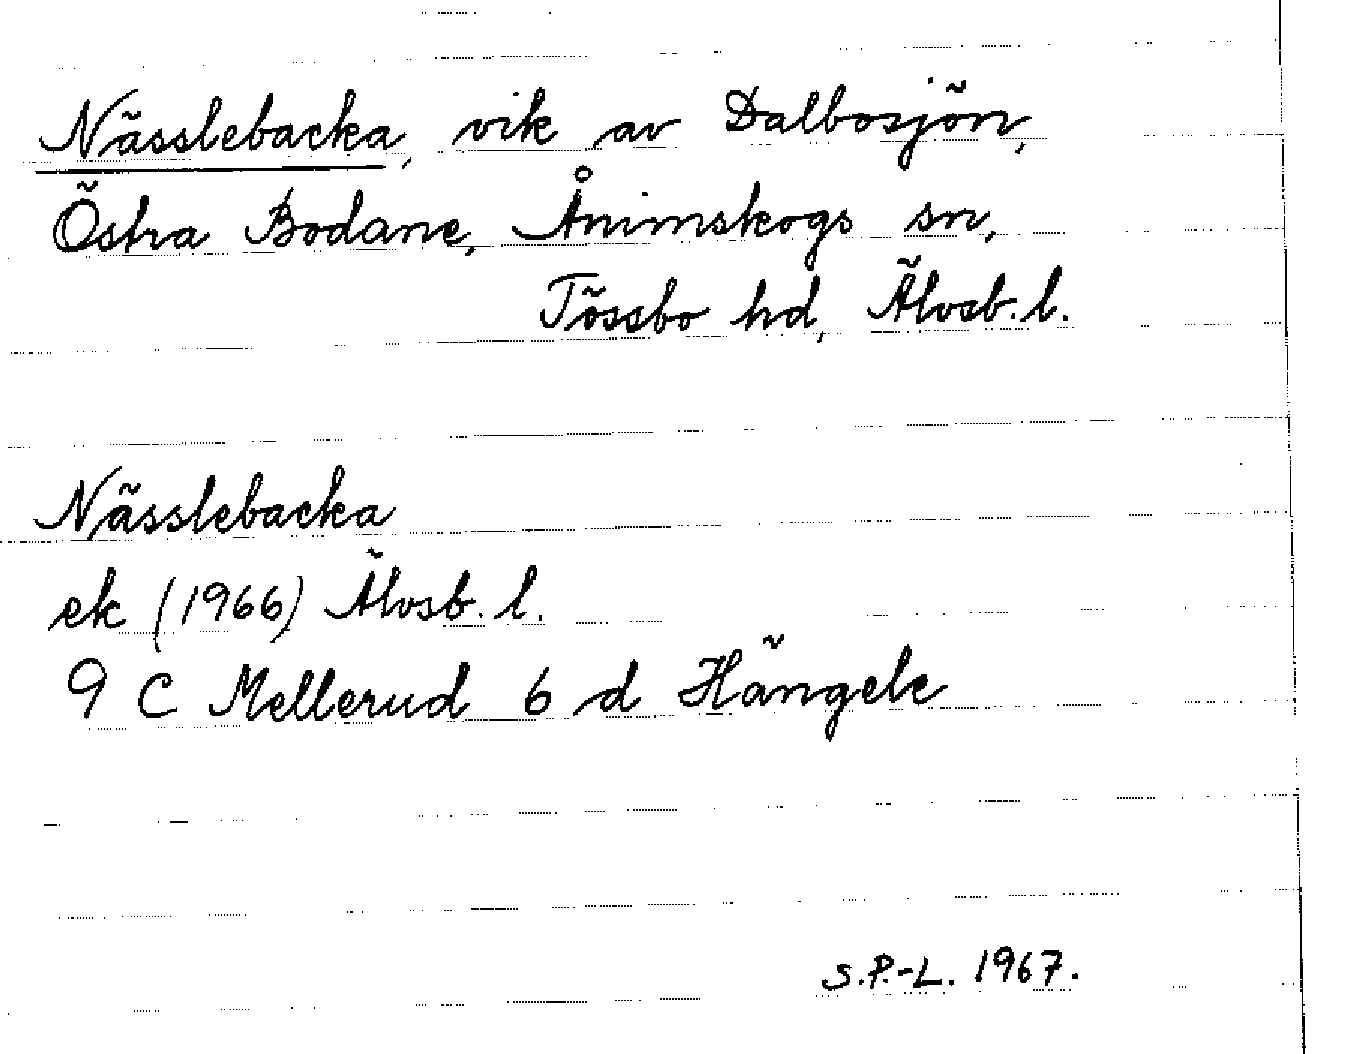 Nässlebacka, vik av Dalbosjön,
Östra Bodane, Ånimskogs sn,
Tössbo hd, Älvsb. l.
Nässlebacka
ek (1966) Älvsb. l.
9 C Mellerud 6 d Hängele
S.P.-L. 1967.